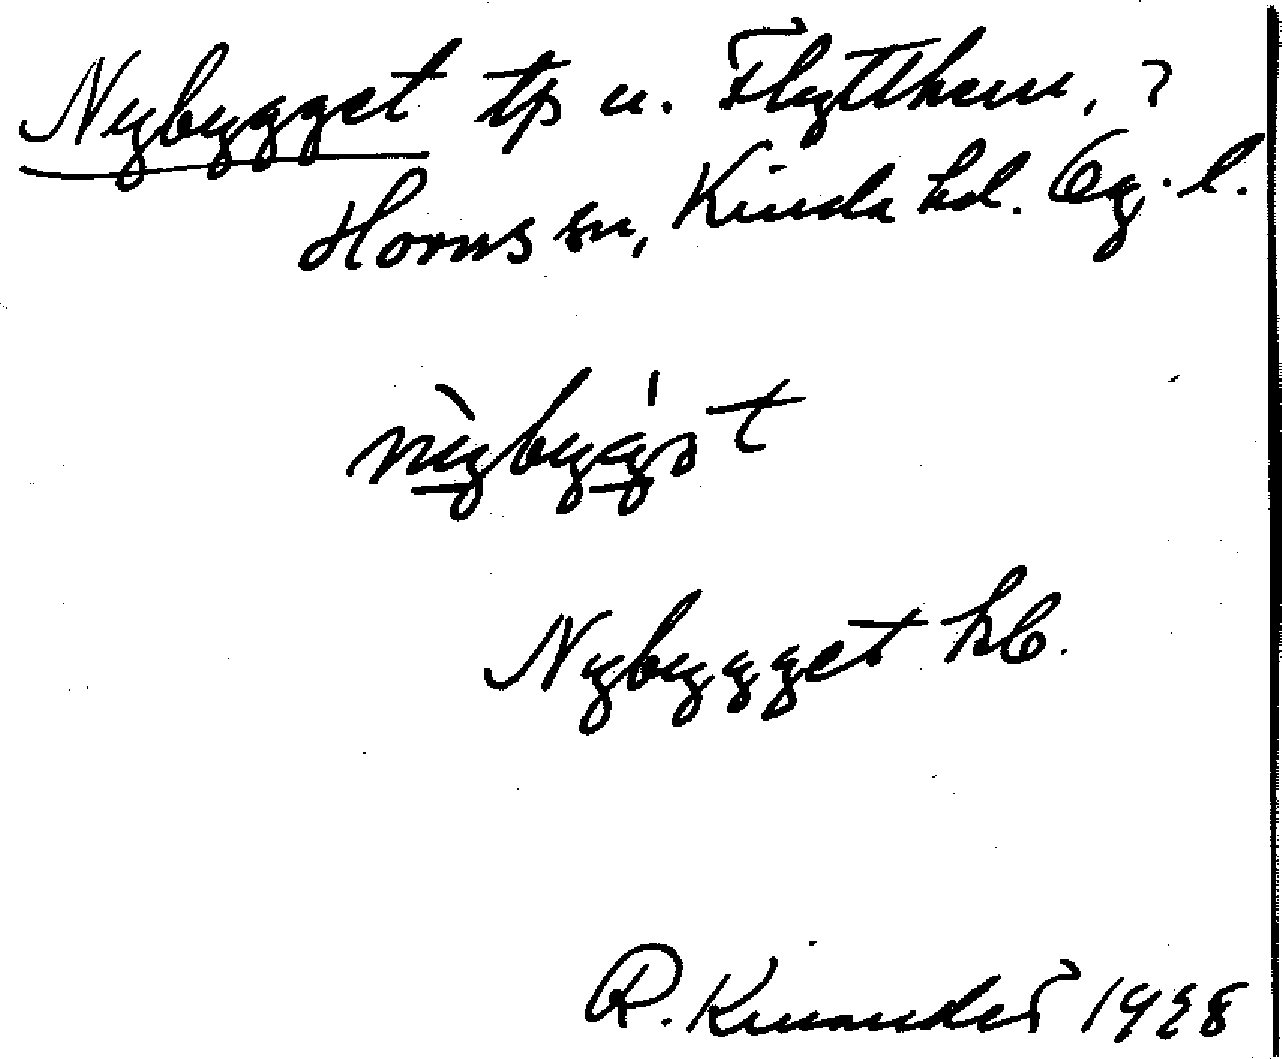 Nybygget tp u. Flytthem, ?
Horns sn, Kinda hd. Ög. l.
Nybygget kb.
R. Kinander 1928